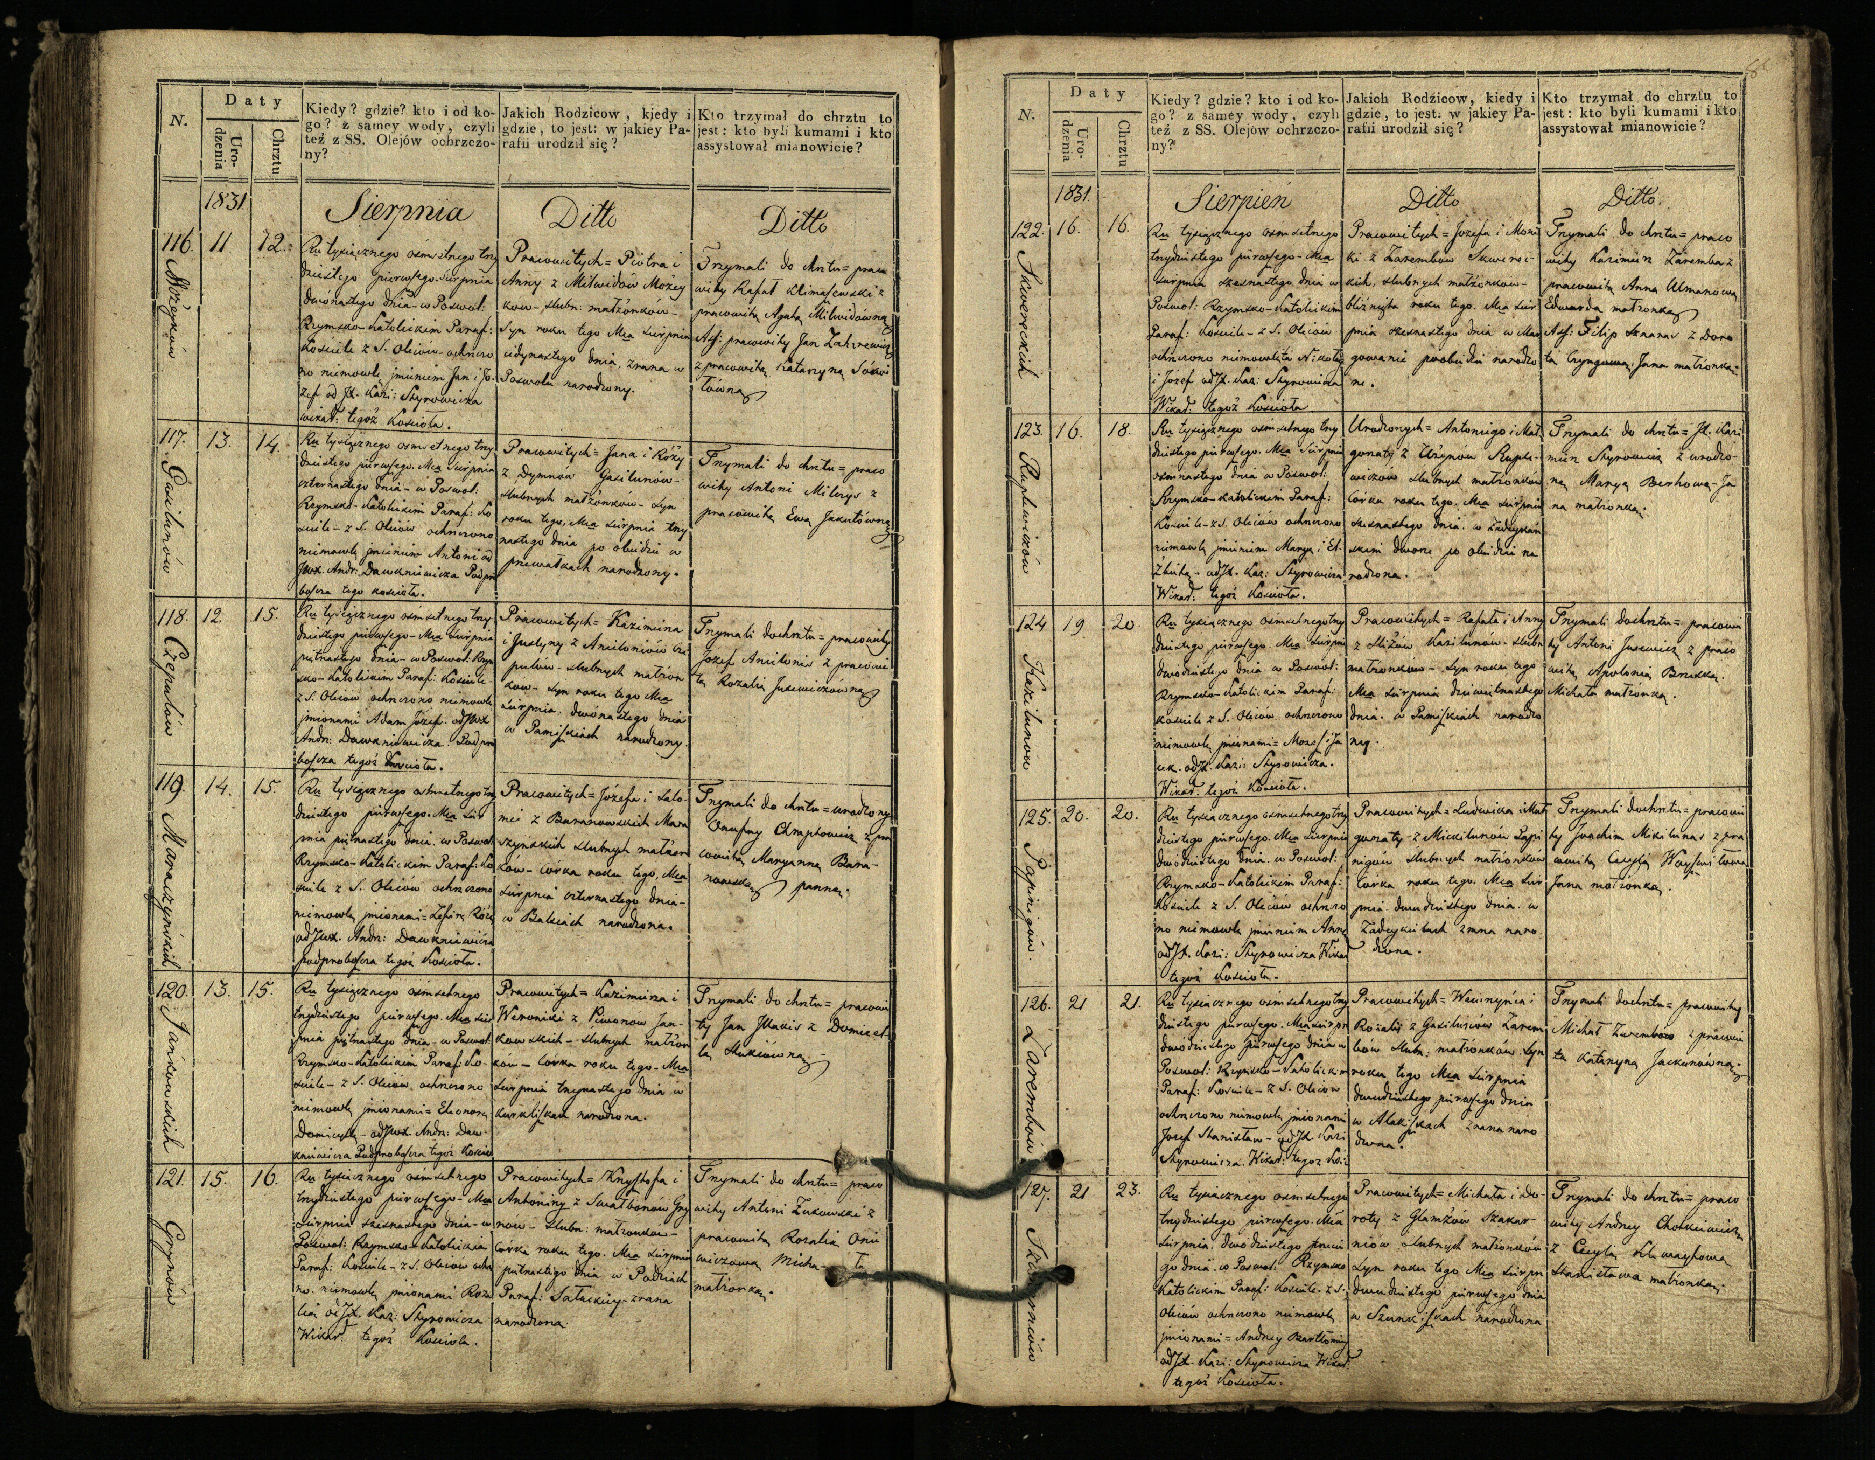 N.
Daty
Urodzenia
Chrztu
Kiedy? gdzie? kto i od ko-
go? z samey wody, czyli
też z SS. Olejów ochrzczo-
ny?
Jakich Rodzicow, kiedy i
gdzie, to jest: w jakiey Pa-
rafii urodził się?
Kto trzymał do chrztu to
jest: kto byli kumami i kto
assystował mianowicie?
1831
Sierpnia
Ditto
Ditto
116. 11 12.
Ru tysiącznego osmsetnego trzy
dziestego pierwszego Sierpnia
dwónastego dnia w Poswol:
Rzymsko-Katolickim Paraf:
Kościele z S. Oleiów ochrzczo
no niemowlę imieniem Jan i Jo-
zef od JX. Kazi: Skyrowicza
Wikar: tegoż Kościoła.
Pracowitych = Piotra i
Anny z Milwidów Możey
kow slubn: małżonków
Syn roku tego Mca Sierpnia
iedynastego dnia zrana w
Poswolu narodzony.
Trzymali do chrztu = praco
wity Rafał Klimaszewski z
pracowitą Agatą Milwidówną
Ass: pracowity Jan Zakrzewicz
z pracowitą Katarzyną
117. 13. 14.
Gasilunów
Ru tysiącznego osmsetnego trzy
dziestego pierwszego Mca Sierpnia
czternastego dnia w Poswol:
Rzymsko-Katolickim Paraf: Ko
ściele z S. Oleiów ochrzczono
niemowlę imieniem Antoni od
JWX. Andr: Dawkniewicza Podpro
boszcza tego Kościoła.
Pracowitych = Jana i Róży
z Dymnów Gasilunów
slubnych małżonków Syn
roku tego Mca Sierpnia trzy
nastego dnia po obiedzie w
narodzony.
Trzymali do chrztu = praco
wity Antoni Mikrys z
pracowitą Ewą Jakutówną
118. 12. 15.
Czepulów
Ru tysiącznego osmsetnego trzy
dziestego pierwszego Mca Sierpnia
piętnastego dnia w Poswol: Rzym
sko-Katolickim Paraf: Kościele
z S. Oleiów ochrzczono niemowlę
imionami Adam Józef od JWX
Andr: Dawkniewicza Podpro
boszcza tegoż Kościoła.
Pracowitych = Kazimierza
i Justyny z Anciloniów Cze
pulów slubnych małżon
kow Syn roku tego Mca
Sierpnia dwónastego dnia
w Pamiszkiach narodzony.
Trzymali do chrztu = pracowity
Jozef Ancilonis z pracowi
tą Rozalią Jusewiczówną
119. 14. 15.
Maraszyńskich
Ru tysiącznego osmsetnego trzy
dziestego pierwszego Mca Sier
pnia piętnastego dnia w Poswol:
Rzymsko-Katolickim Paraf: Ko
ściele z S. Oleiów ochrzczono
niemowlę imionami =
od JWX. Andr: Dawkniewicza
podproboszcza tegoż Kościoła.
Pracowitych = Józefa i Salo-
mei z Baranowskich Mara
szynskich slubnych małżon
ków córka roku tego Mca
Sierpnia czternastego dnia
w narodzona.
Trzymali do chrztu = urodzony
Onufry Chmptowicz z pra
cowitą Maryanną Bara-
nowską panną.
120. 13. 15.
Jankowskich
Ru tysiącznego osmsetnego
trzydziestego pierwszego Mca Sier
pnia piętnastego dnia w Poswol:
Rzymsko-Katolickim Paraf: Ko-
ściele z S. Oleiów ochrzczono
niemowlę imionami = Eleonora
Domicella od JWX. Andr: Daw-
kniewicza Podproboszcza tegoż Kościoła
Pracowitych = Kazimierza i
Weroniki z Piwonow Jan-
kowskich slubnych małżon
ków córka roku tego Mca
Sierpnia trzynastego dnia w
Kurkliszkach narodzona.
Trzymali do chrztu = pracowi
ty Jan z Domicel-
lą
121. 15. 16.
Grynów
Ru tysiącznego osmsetnego
trzydziestego pierwszego Mca
Sierpnia szesnastego dnia w
Poswol: Rzymsko-Katolickim
Paraf: Kościele z S. Oleiów ochrzczo
no niemowlę imionami Roza
lia od JX. Kaz: Skyrowicza
Wikar: tegoż Kościoła.
Pracowitych = Krzysztofa i
Antoniny z Gry
now slubn: małżonkow
córka roku tego Mca Sierpnia
piętnastego dnia w
Paraf: zrana
narodzona.
Trzymali do chrztu = praco
wity Antoni Żukowski z
pracowitą Rozalią
Michała
małżonką.
N.
Daty
Urodzenia
Chrztu
Kiedy? gdzie? kto i od ko-
go? z samey wody, czyli
też z SS. Olejów ochrzczo-
ny?
Jakich Rodzicow, kiedy i
gdzie, to jest: w jakiey Pa-
rafii urodził się?
Kto trzymał do chrztu to
jest: kto byli kumami i kto
assystował mianowicie?
1831.
Sierpień
Ditto
Ditto.
122. 16. 16.
Ru tysiącznego osmsetnego
trzydziestego pierwszego Mca
Sierpnia szesnastego dnia w
Poswol: Rzymsko-Katolickim
Paraf: Kościele z S. Oleiów
ochrzczono niemowlęta Nikołay
i Jozef od JX. Kaz: Skyrowicza
Wikar: tegoż Kościoła
Pracowitych = Jozefa i
z Zarembow
skich slubnych małżonkow
bliźnięta roku tego Mca Sier
pnia szesnastego dnia w
po obiedzie narodzo
ne.
Trzymali do chrztu = praco
wity Kazimierz Zaremba z
pracowitą Anną Ulmanową
Edwarda małżonką
Ass: Filip z Doro
tą Jana małżonką
123. 16. 18.
Ru tysiącznego osmsetnego trzy
dziestego pierwszego Mca Sierpnia
osmnastego dnia w Poswol:
Rzymsko-Katolickim Paraf:
Kościele z S. Oleiów ochrzczono
niemowlę imieniem Marya i El-
żbieta od JX. Kaz: Skyrowicza
Wikar: tegoż Kościoła.
Urodzonych = Antoniego i Mał
gorzaty z Ruple-
wiczów slubnych małżonków
Córka roku tego Mca Sierpnia
szesnastego dnia w
dworze po obiedzie na
rodzona.
Trzymali do chrztu = JX. Kazi
mierz Skyrowicz z urodzo-
ną Maryą Berkową Ja
na małżonką.
124 19 20
Kazilunow
Ru tysiącznego osmsetnego trzy
dziestego pierwszego Mca Sierpnia
dwódziestego dnia w Poswol:
Rzymsko-Katolickim Paraf:
Kościele z S. Oleiów ochrzczono
niemowlę imionami = i Ja
cek od JX. Kaz: Skyrowicza
Wikar: tegoż Kościoła.
Pracowitych = Rafała i Anny
z Kazilunów slubn
małżonkow Syn roku tego
Mca Sierpnia dziewiętnastego
dnia w Pamiszkiach narodzo
ny.
Trzymali do chrztu = pracowi
ty Antoni Jusewicz z praco
witą Apolonią
Michała małżonką.
125. 20. 20.
Ru tysiącznego osmsetnego trzy
dziestego pierwszego Mca Sierpnia
dwódziestego dnia w Poswol:
Rzymsko-Katolickim Paraf:
Kościele z S. Oleiów ochrzczo
no niemowlę imieniem Anna
od JX. Kazi: Skyrowicza Wikar
tegoż Kościoła.
Pracowitych = Ludwika i Mał
gorzaty z Mickilunów
nigów slubnych małżonkow
Córka roku tego Mca Sier
pnia dwudziestego dnia w
Zadeykielach zrana naro
dzona.
Trzymali do chrztu = pracowi
ty Joachim Mikilunas z pra
cowitą Cecylą
Jana małżonką.
126. 21 21.
Zarembów
Ru tysiącznego osmsetnego trzy
dziestego pierwszego Mca Sierpn
dwódziestego pierwszego dnia w
Poswol: Rzymsko-Katolickim
Paraf: Kościele z S. Oleiów
ochrzczono niemowlę imionami
Jozef Stanisław od JX. Kazi
Skyrowicza Wikar: tegoż Koś:
Pracowitych = Wawrzyńca i
Rozalij z Gasilusiów Zarem
bów slubn: małżonków Syn
roku tego Mca Sierpnia
dwudziestego pierwszego dnia
w zrana naro
dzony.
Trzymali do chrztu = pracowity
Michał Zaremba z pracowi
tą Katarzyną
127. 21 23.
Ru tysiącznego osmsetnego
trzydziestego pierwszego Mca
Sierpnia dwódziestego trzecie
go dnia w Poswol: Rzymsko
Katolickim Paraf: Kościele z S.
Oleiów ochrzczono niemowlę
imionami = Andrzey Bartłomiey
od JX. Kazi: Skyrowicza Wikar:
tegoż Kościoła.
Pracowitych = Michała i Do-
roty z Szakar
niów slubnych małżonków
Syn roku tego Mca Sierpn
dwudziestego pierwszego dnia
w narodzony
Trzymali do chrztu = praco
wity Andrzey Chodkiewicz
z Cecylą
Stanisława małżonką.